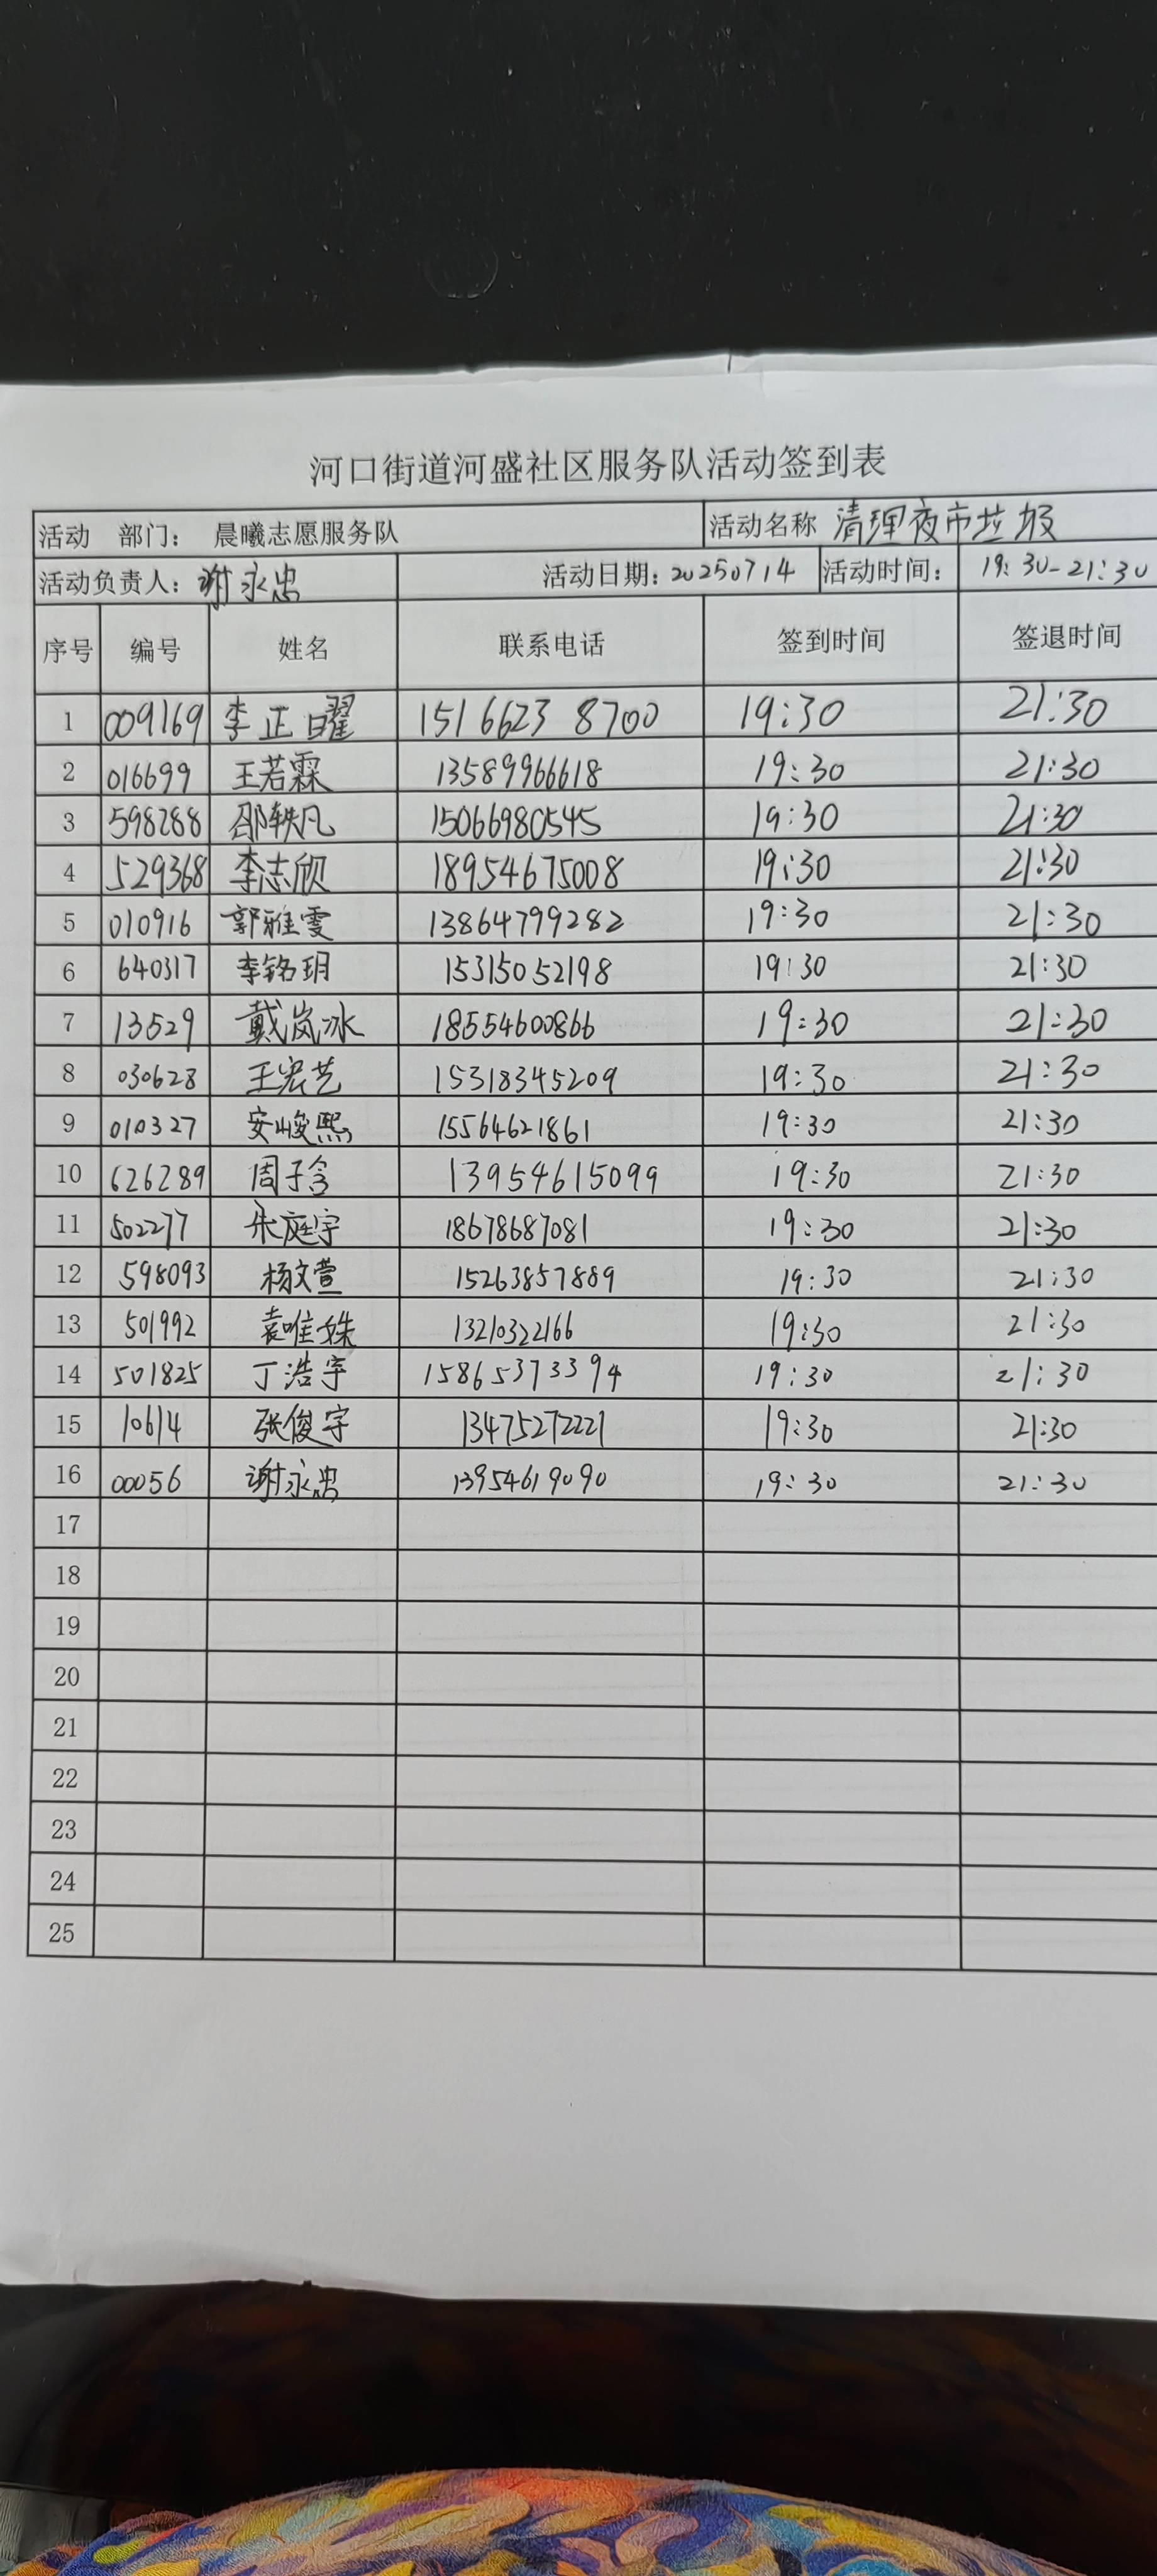 河口街道河盛社区服务队活动签到表
活动 部门： 晨曦志愿服务队 活动名称 清理夜市垃圾
活动负责人：谢永忠 活动日期：20250714 活动时间： 19:30-21:30
序号 编号 姓名 联系电话 签到时间 签退时间
1 009169 李正曜 15166238700 19:30 21:30
2 016699 王若霖 13589966618 19:30 21:30
3 598288 邵轶凡 15066980545 19:30 21:30
4 529368 李志欣 18954675008 19:30 21:30
5 010916 郭雅雯 13864799282 19:30 21:30
6 640317 李铭玥 15315052198 19:30 21:30
7 13529 戴岚冰 18554600866 19:30 21:30
8 030628 王宏艺 15318345209 19:30 21:30
9 010327 安峻熙 15564621861 19:30 21:30
10 626289 周子含 13954615099 19:30 21:30
11 502277 朱庭宇 18678687081 19:30 21:30
12 598093 杨文萱 15263857889 19:30 21:30
13 501992 袁唯姝 13210322166 19:30 21:30
14 501825 丁浩宇 15865373394 19:30 21:30
15 10614 张俊宇 13475272221 19:30 21:30
16 00056 谢永忠 13954619090 19:30 21:30
17
18
19
20
21
22
23
24
25